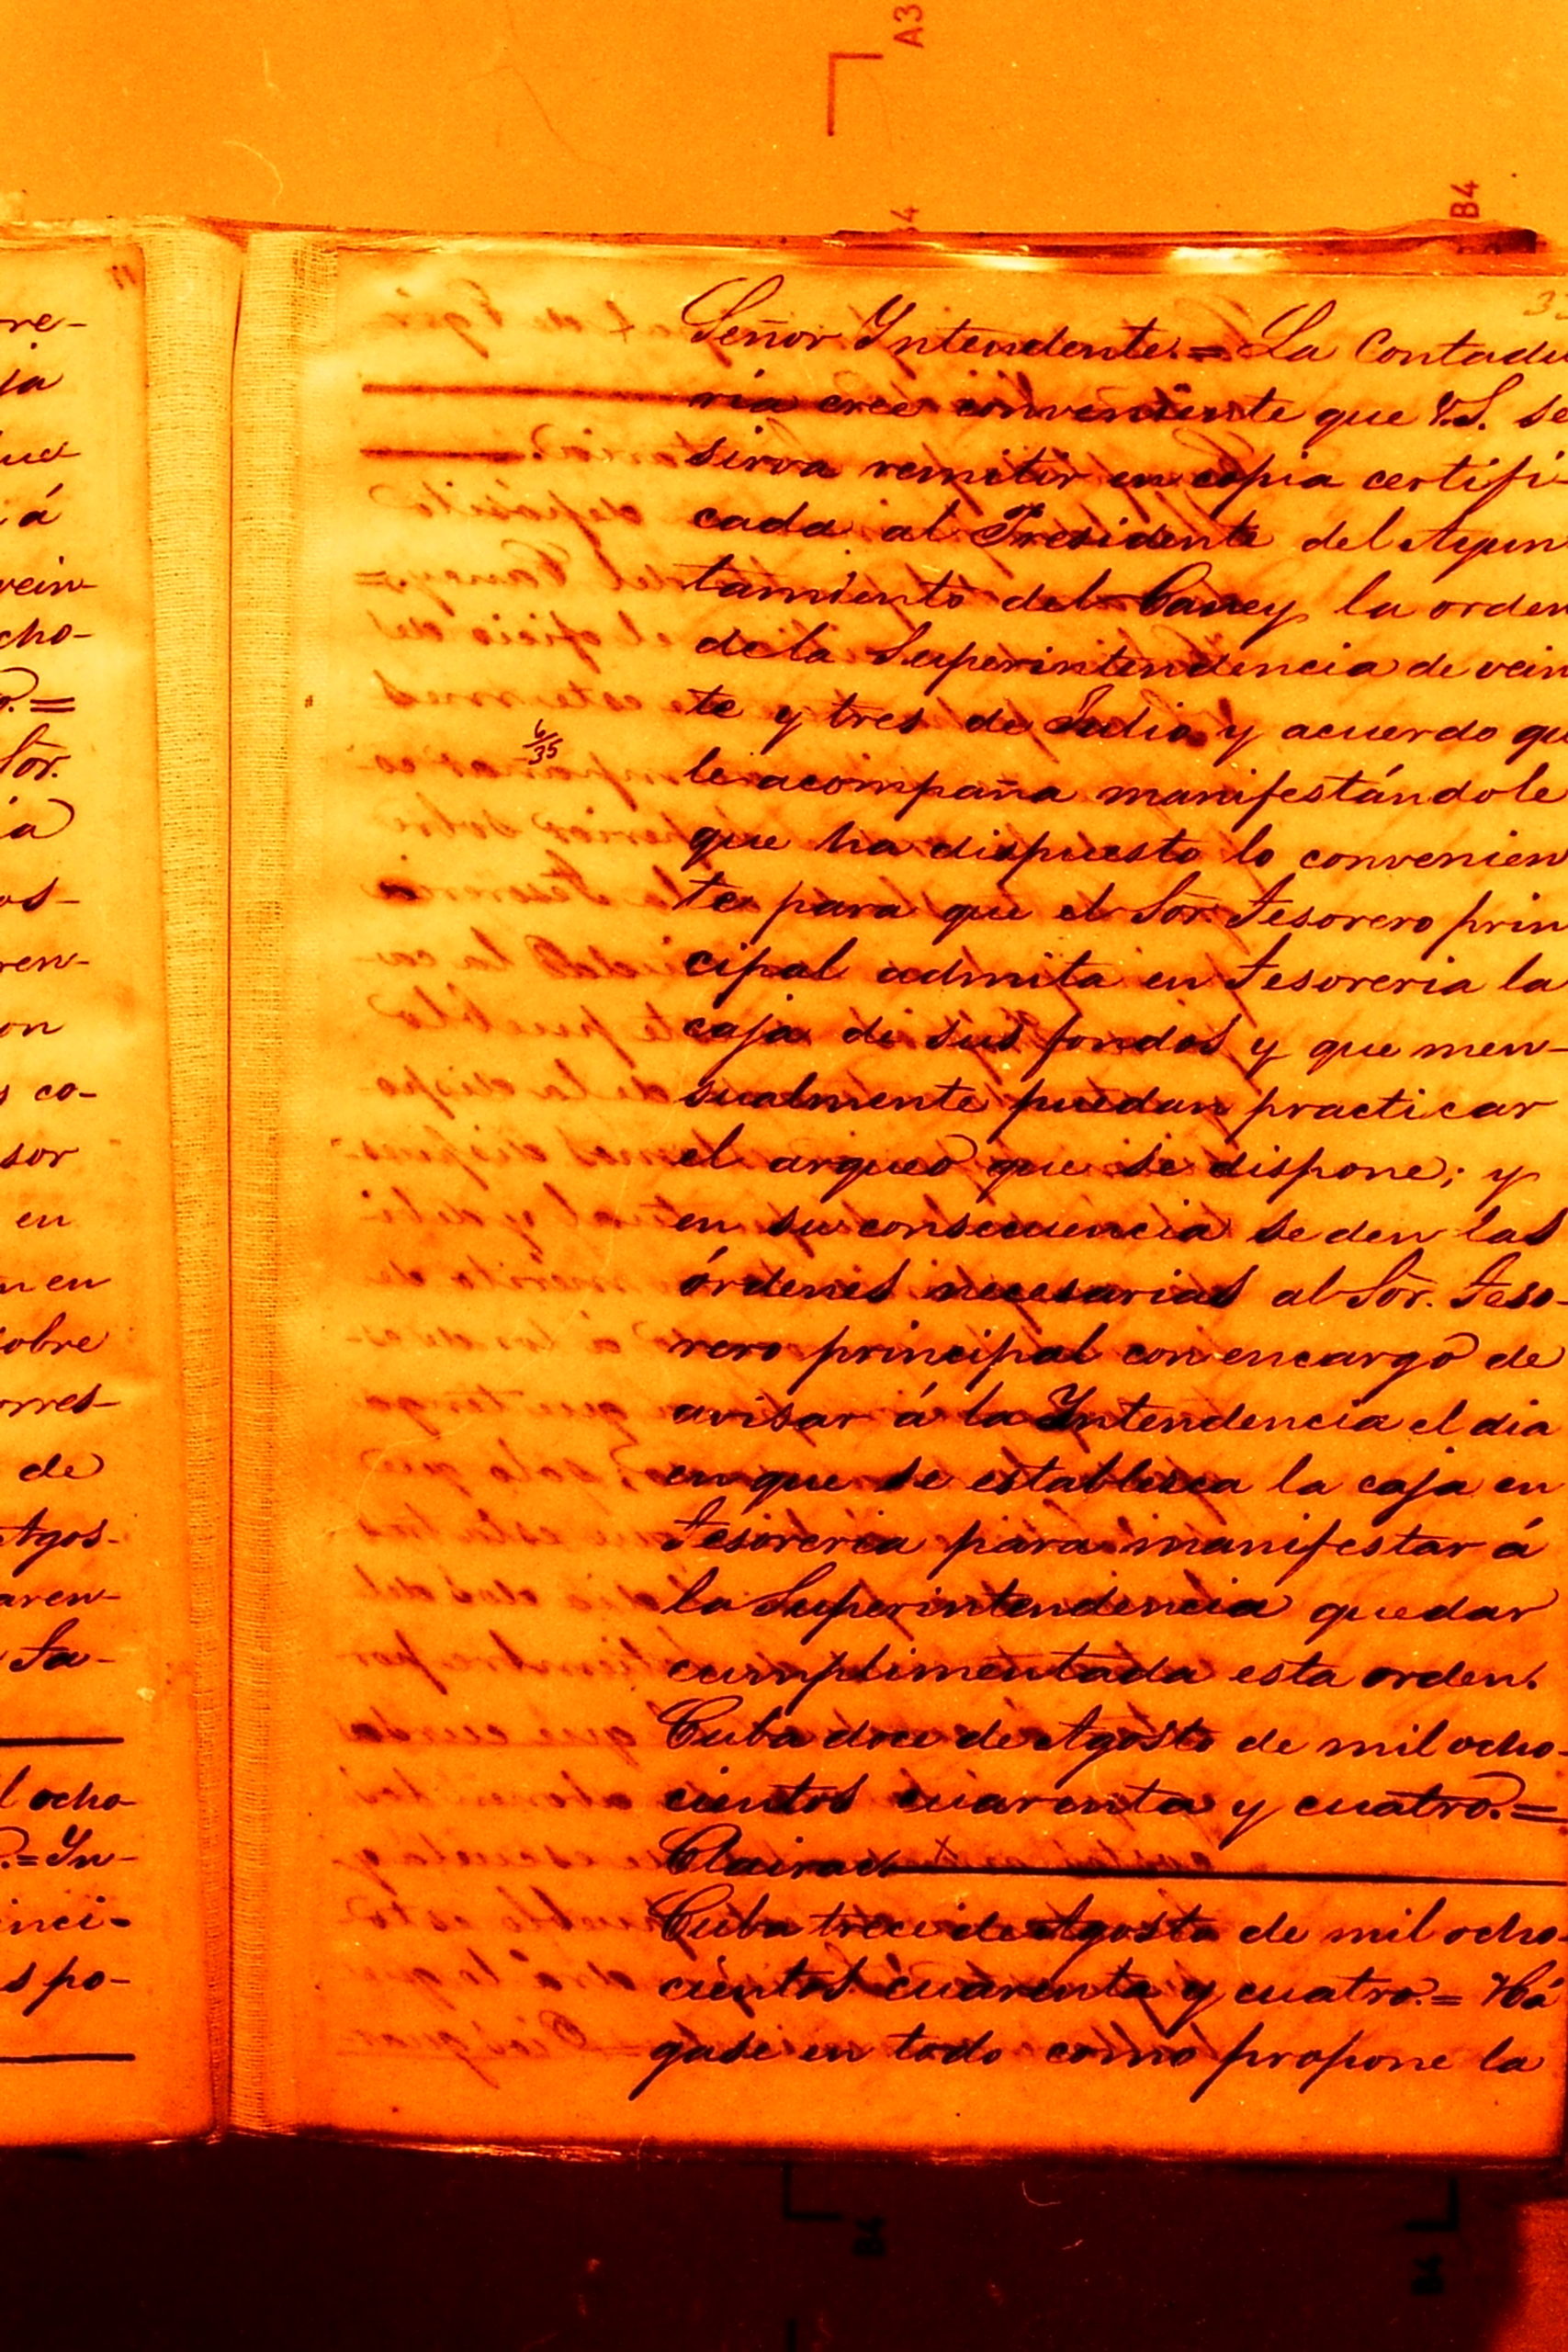 A3
B4
re-
ja
á
vein-
cho-
Sōr.
ia
os-
ren-
on
s co-
sor
en
n en
sobre
orres-
de
Agos-
aren-
Ja-
l ocho-
= Yn-
inci-
s po-
Señor Yntendente. = La Contadu
ria cree conveniente que V.S. se
sirva remitir en copia certifi-
cada al Presidente del Ayun
tamiento del Caney la orden
de la Superintendencia de vein
te y tres de Julio y acuerdo qu
6/35
le acompaña manifestándole
que ha dispuesto lo convenien
te para que el Sōr Tesorero prin
cipal admita en Tesoreria la
caja de sus fondos y que men-
sualmente puedan practicar
el arqueo que se dispone; y
en su consecuencia se den las
órdenes necesarias al Sōr. Teso-
rero principal con encargo de
avisar á la Yntendencia el dia
en que se establesca la caja en
Tesoreria para manifestar á
la Superintendencia quedar
cumplimentada esta orden.
Cuba doce de Agosto de mil ocho-
cientos cuarenta y cuatro. =
Clairac
Cuba trece de Agosto de mil ocho-
cientos cuarenta y cuatro. = Há
gase en todo como propone la
B4
B4